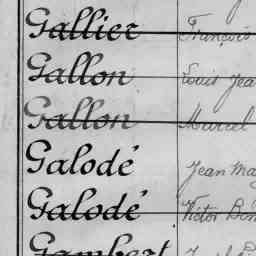 Gallier François
Gallon Louis Jea
Gallon Marcel
Galodé Jean Ma
Galodé Victor Ben
Gambert